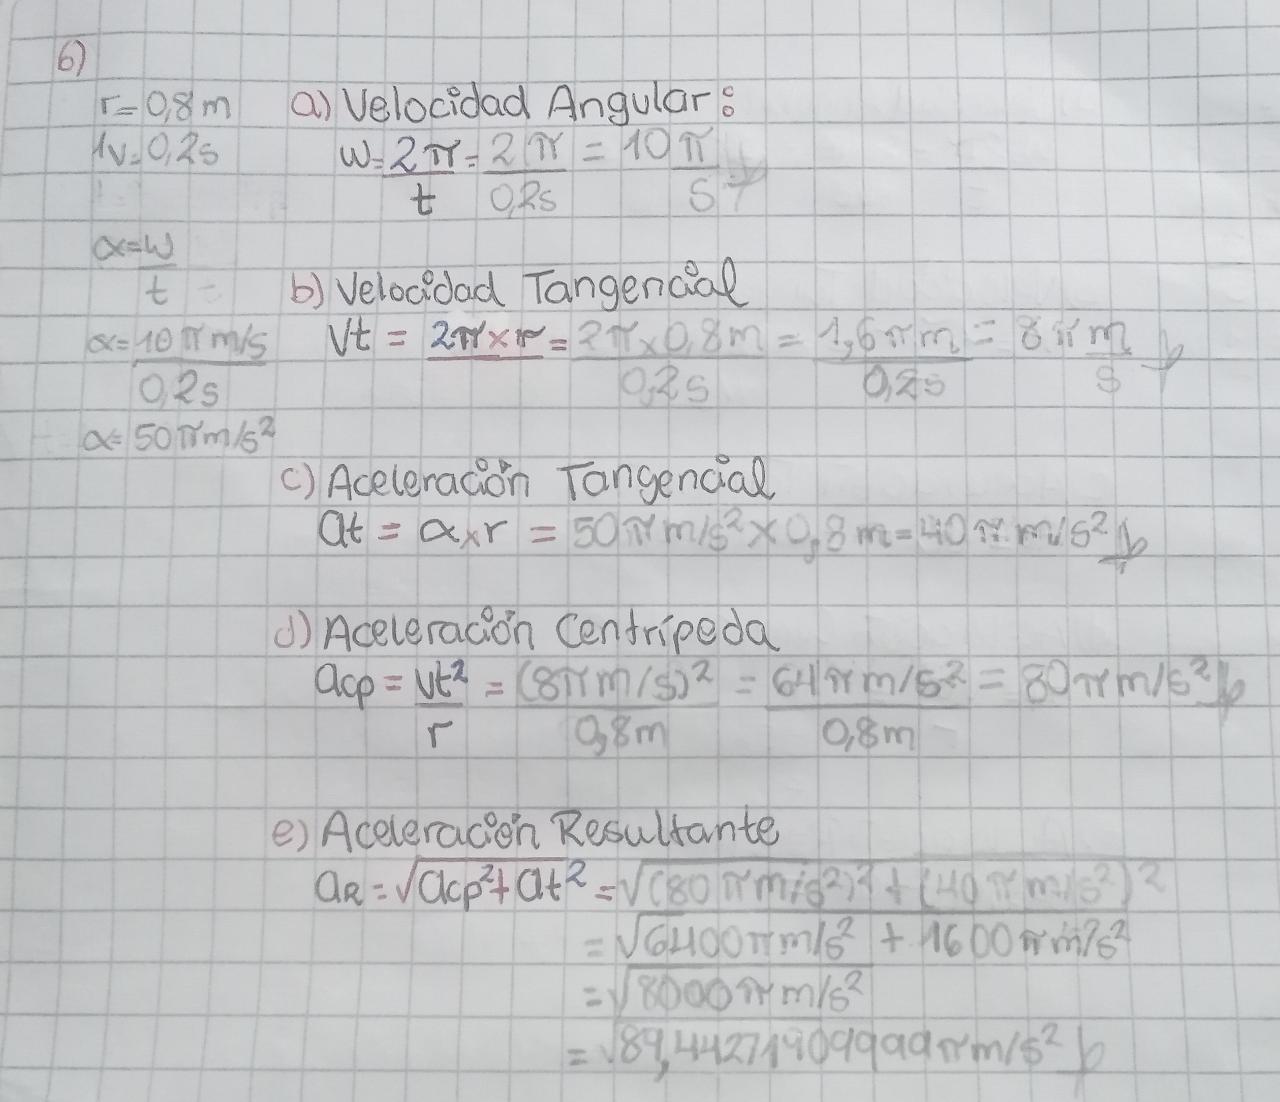 6)
r=0,8m
1v=0,2s
α=w/t
α=10πm/s / 0,2s
α=50πm/s²
a) Velocidad Angular:
w=2π/t=2π/0,2s=10π/s
b) Velocidad Tangencial
Vt = 2π×r = 2π×0,8m/0,2s = 1,6πm/0,2s = 8πm/s
c) Aceleración Tangencial
at = α×r = 50πm/s²×0,8m=40πm/s²
d) Aceleración Centrípeda
acp = vt²/r = (8πm/s)²/0,8m = 64πm/s²/0,8m = 80πm/s²
e) Aceleración Resultante
aR=√acp²+at² =√(80πm/s²)²+(40πm/s²)²
=√6400πm/s² + 1600πm²/s²
=√8000πm/s²
=√89,4427190999πm/s²